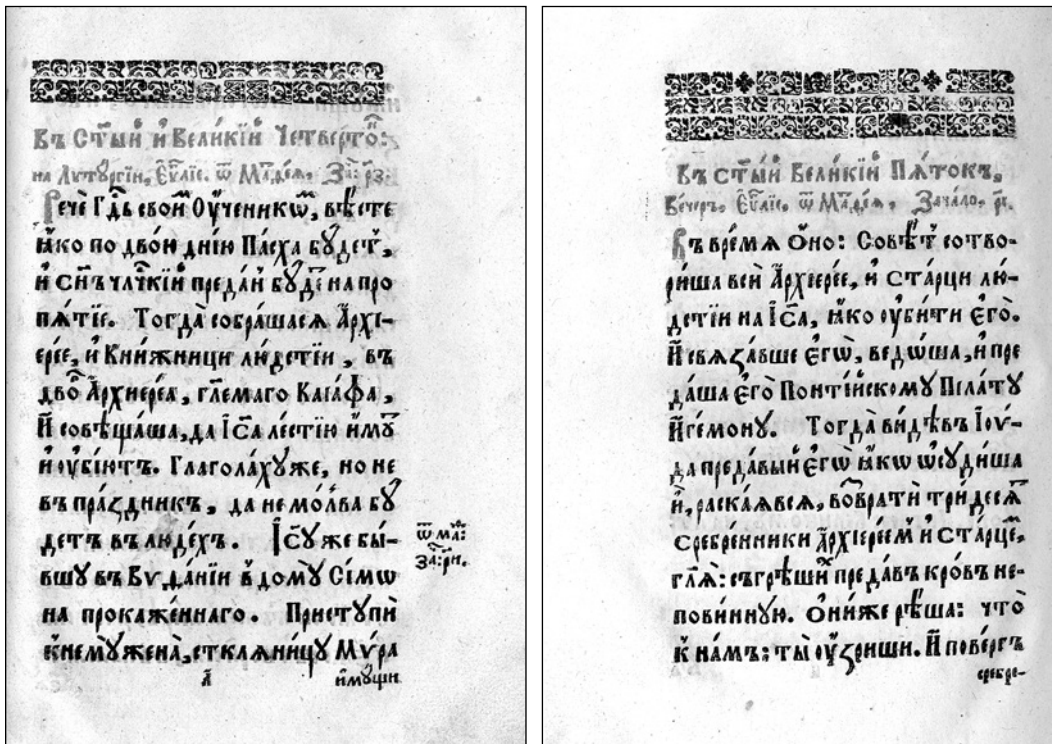 Въ Ст҃ый и҆ Великїй Четверто́к:
на Лѵтꙋргїи, Є҆ѵⷢ҇лїе. ѿ Матѳе́ѧ, За: р҃з
Речѐ Гдⷭ҇ь свои́мъ Оу҆ченикѡⷨ, вѣ́сте
ꙗ҆́ко по двою̀ днїю Па́сха бꙋ́детъ,
и҆ сн҃ъ чл҃ческїй преда́н бꙋ́де на про
пѧ́тїе. Тогда̀ собра́шасѧ А҆рхї-
ере́е, и҆ Кни́жници лю́дстїи, въ
дво́ⷬ А҆рхиере́а, гл҃емаго Каїа́фа,
И҆ совѣща́ша, да І҆с҃а ле́стїю и҆́мꙋⷮ
и҆ оу҆бїю́тъ. Глаго́лахꙋ же, но не
въ пра́здникъ, да не мо́лва бꙋ
детъ въ лю́дехъ. І҆с҃ꙋ же бы́-
вшꙋ въ Вѵѳа́нїи в домꙋ̀ Сі́мѡ
на прокаже́ннаго. Пристꙋпѝ
к немꙋ̀ жена̀, сткля́ницꙋ Мѵ́ра
а҃
и҆мꙋщи
ѿ маⷮ:
За: р҃и.
Въ ст҃ы́й Вели́кїй Пѧ́токъ,
Ве́черъ, Є҆ѵⷢ҇лїе, ѿ Матѳе́ѧ, Зача́ло, р҃і.
Въ вре́мѧ О҆́но: Совѣ́тъ сотво-
ри́ша всѝ А҆рхїере́е, и҆ Ста́рци лю́-
дстїи на І҆с҃а, ꙗ҆́ко оу҆би́ти Є҆го̀.
И҆ свѧза́вше Є҆гѡ̀, ведо́ша, и҆ пре
да́ша Є҆го̀ Понті́йскомꙋ Піла́тꙋ
И҆ге́монꙋ. Тогда̀ ви́дѣвъ І҆оѵ́-
да преда́выи Є҆гѡ̀ ꙗ҆́кѡ ѡ҆сꙋди́ша
и҆̀, раска́ѧвсѧ, возвратѝ три́десѧⷮ
Сре́бренники а҆рхїере́ѡм и҆ Ста́рцеⷨ,
гл҃ѧ: съгрѣши́х преда́въ кро́въ не-
пови́ннꙋю. О҆ни́ же рѣ́ша: что̀
к на́мъ: ты̀ оу҆́зриши. И҆ пове́ргъ
сребре-